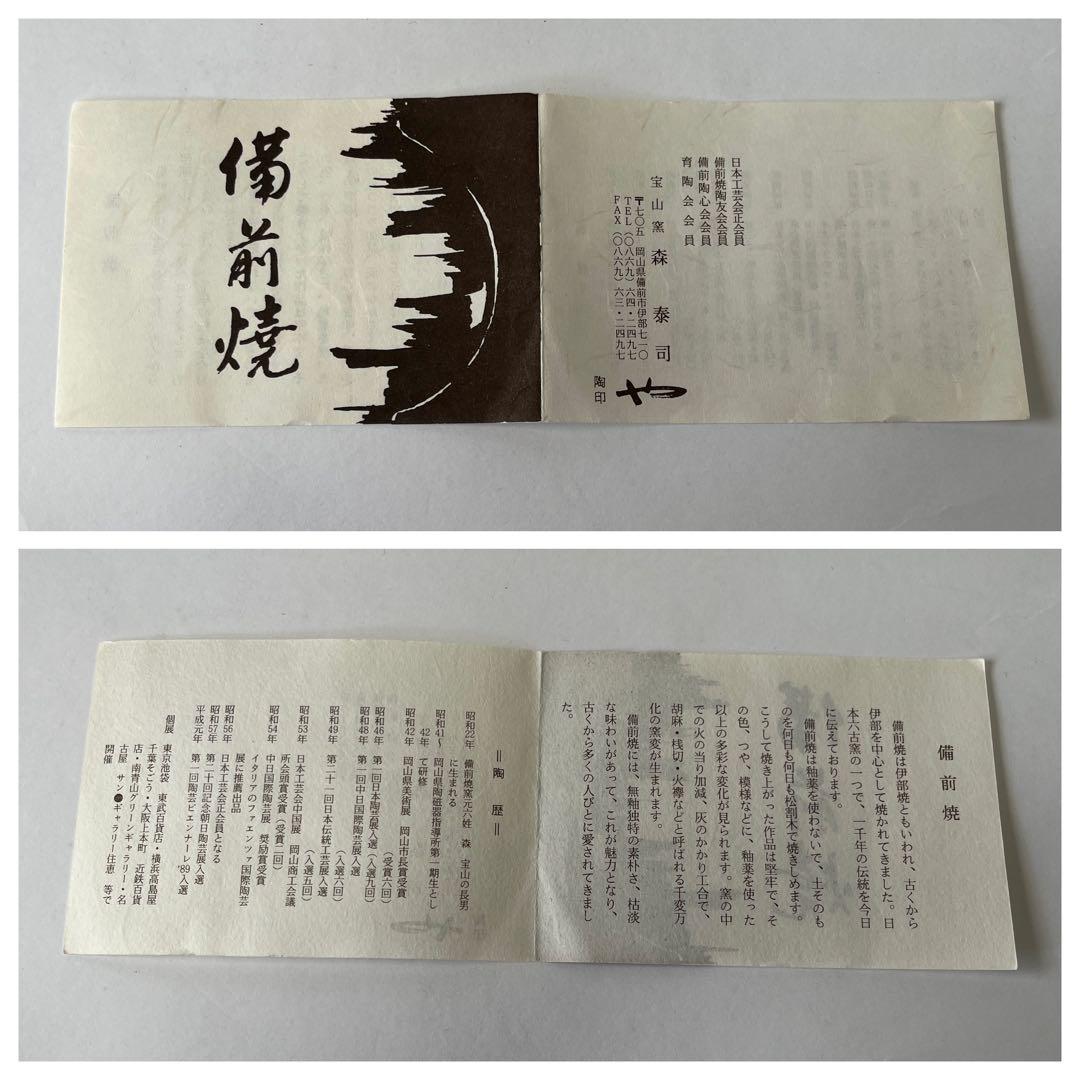 備前焼
日本工芸会正会員
備前焼陶友会会員
備前陶心会会員
育陶会会員
宝山窯 森泰司
〒七〇五 岡山県備前市伊部七一〇
TEL(〇八六九)六四・二四九七
FAX(〇八六九)六三・二四九七
陶印
備前焼
備前焼は伊部焼ともいわれ、古くから
伊部を中心として焼かれてきました。日
本六古窯の一つで、一千年の伝統を今日
に伝えております。
備前焼は釉薬を使わないで、土そのも
のを何日も何日も松割木で焼きしめます。
こうして焼き上がった作品は堅牢で、そ
の色、つや、模様などに、釉薬を使った
以上の多彩な変化が見られます。窯の中
での火の当り加減、灰のかかり工合で、
胡麻・桟切・火襷などと呼ばれる千変万
化の窯変が生まれます。
備前焼には、無釉独特の素朴さ、枯淡
な味わいがあって、これが魅力となり、
古くから多くの人びとに愛されてきまし
た。
=陶歴=
昭和22年 備前焼窯元六姓 森 宝山の長男
に生まれる
昭和41〜 岡山県陶磁器指導所第一期生とし
42年 て研修
昭和42年 岡山県美術展 岡山市長賞受賞
(受賞六回)
昭和46年 第一回日本陶芸展入選(入選九回)
昭和48年 第一回中日国際陶芸展入選
(入選六回)
昭和49年 第二十一回日本伝統工芸展入選
(入選五回)
昭和53年 日本工芸会中国展 岡山商工会議
所会頭賞受賞(受賞二回)
昭和54年 中日国際陶芸展 奨励賞受賞
イタリアのファエンツァ国際陶芸
展に推薦出品
昭和56年 日本工芸会正会員となる
昭和57年 第二十回記念朝日陶芸展入選
平成元年 第一回陶芸ビエンナーレ'89入選
個展 東京池袋 東武百貨店・横浜高島屋
千葉そごう・大阪上本町 近鉄百貨
店・南青山グリーンギャラリー・名
古屋 サン●ギャラリー住恵 等で
開催